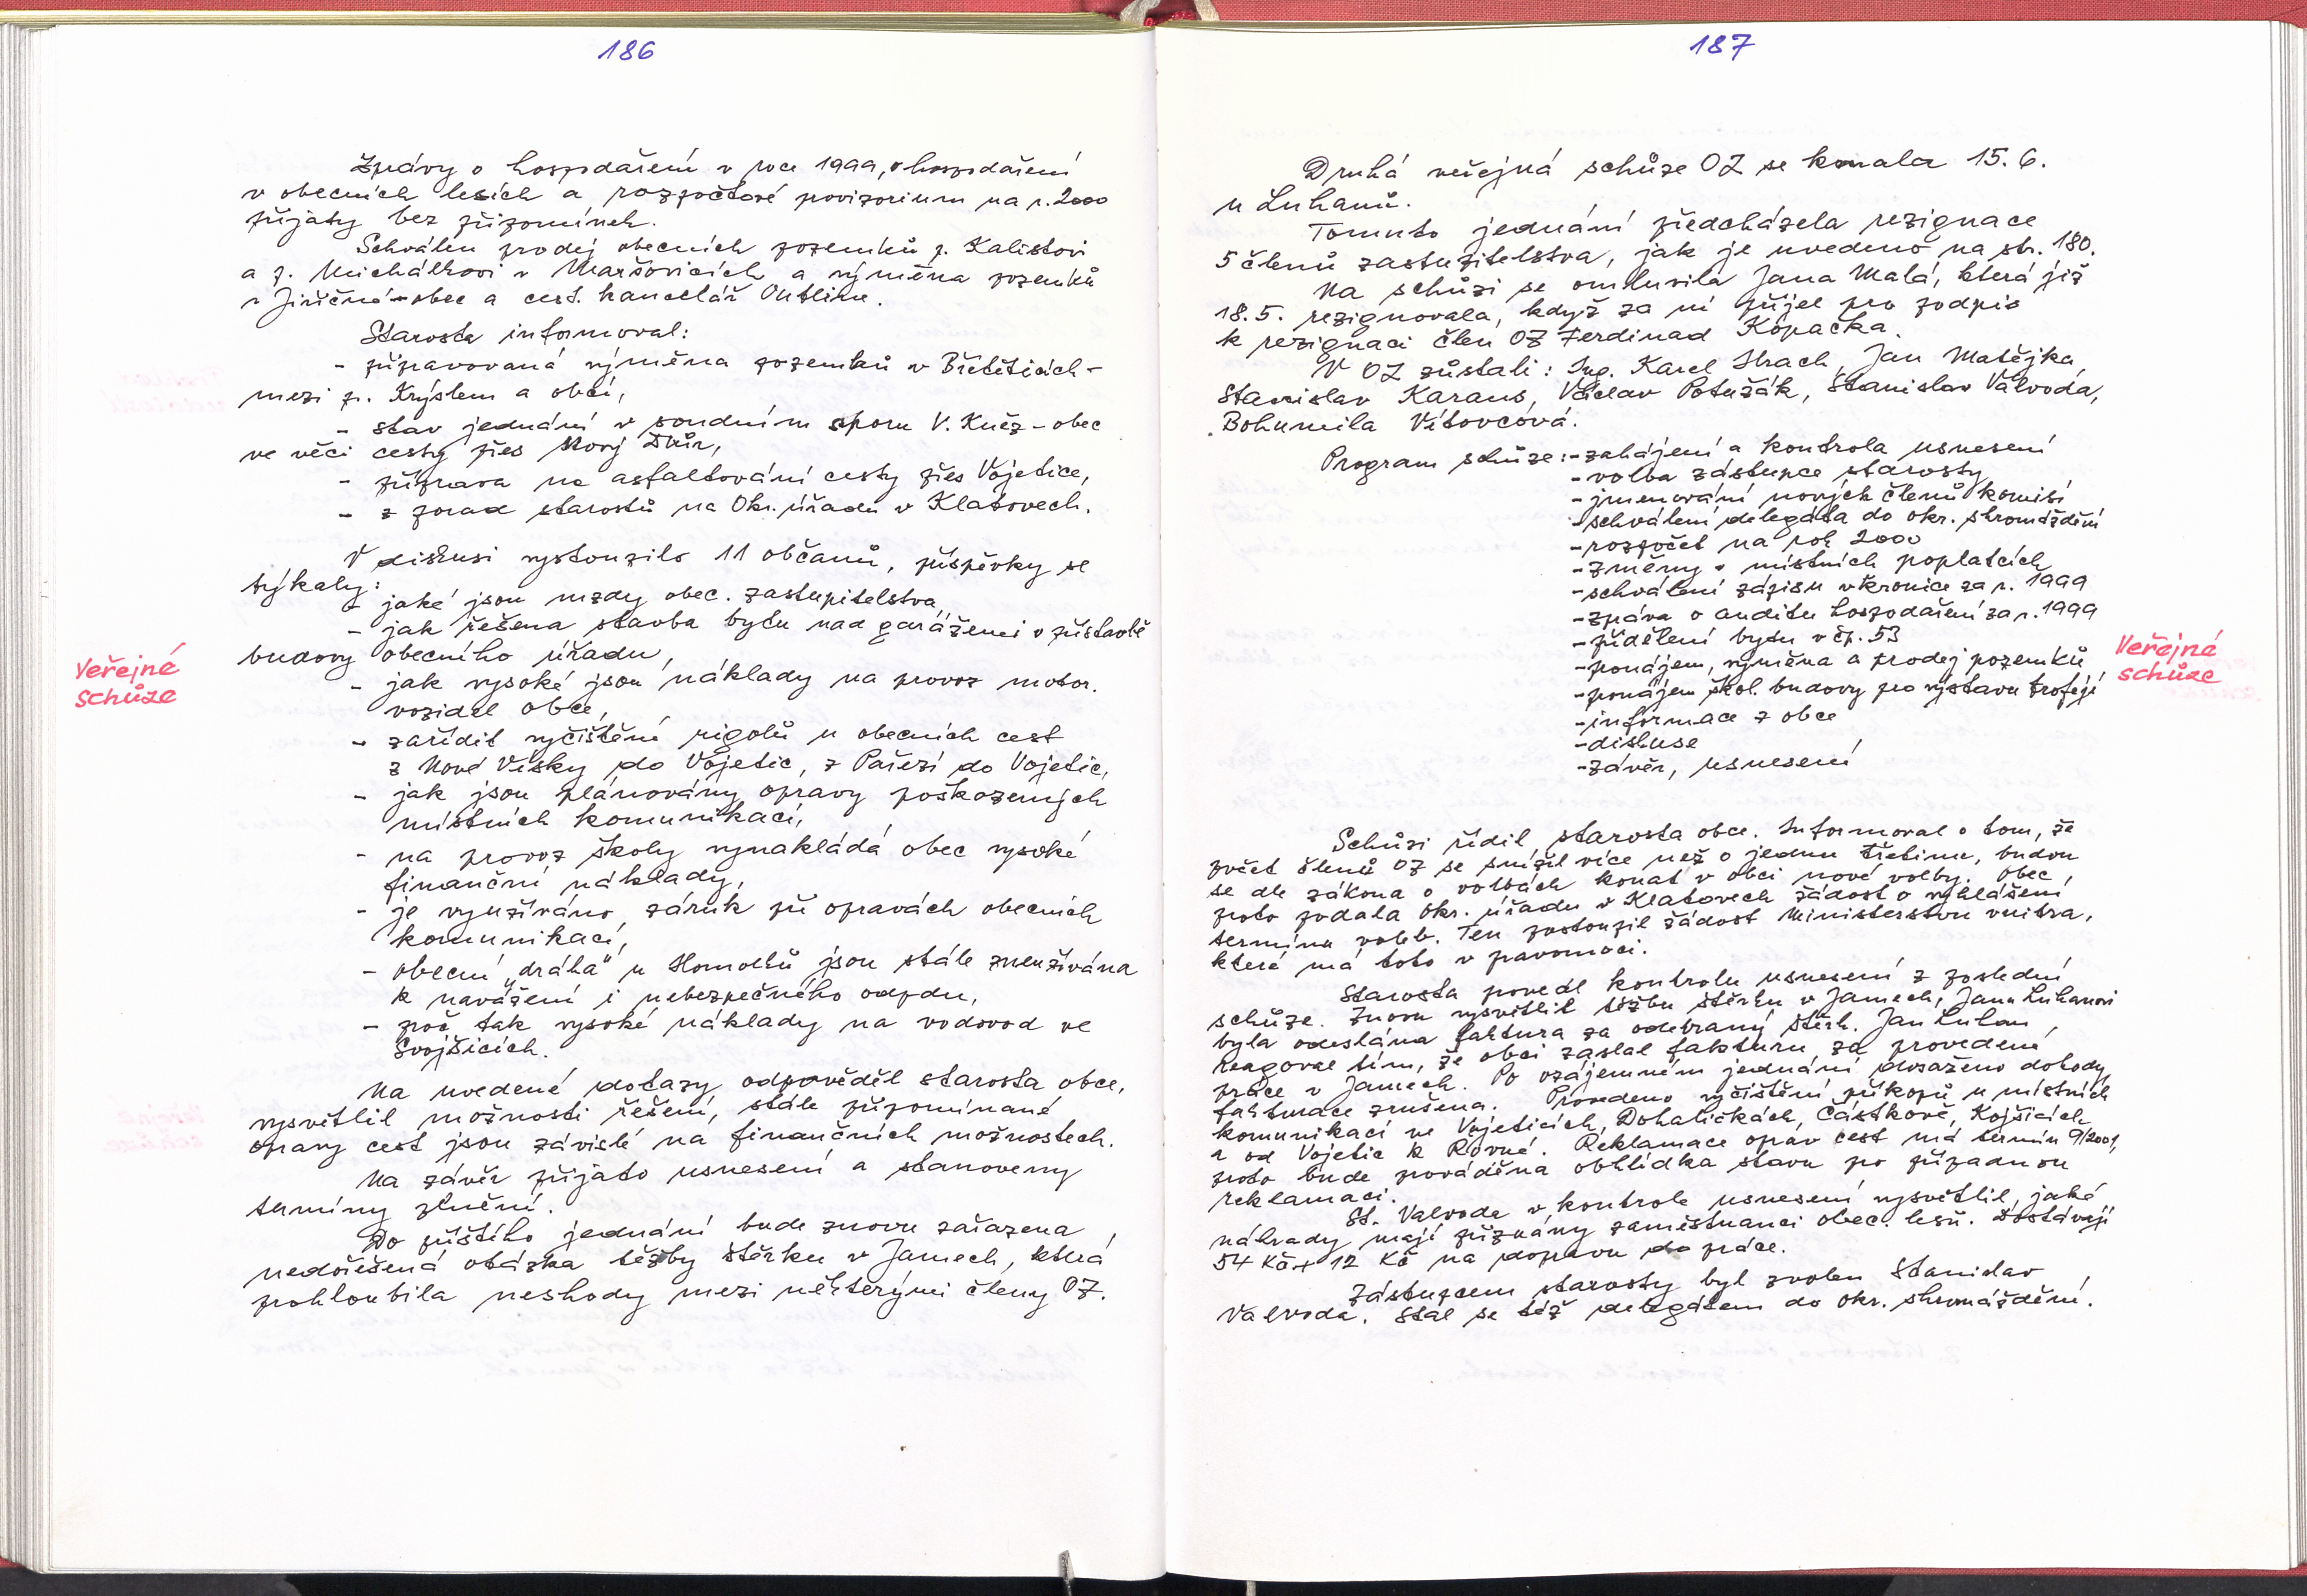 186
Zprávy o hospodaření v roce 1999, o hospodaření
v obecních lesích a rozpočtové provizorium na r. 2000
přijaty bez připomínek.
Schválen prodej obecních pozemků p. Kalistovi
a p. Michálkovi v Maršovicích a výměna pozemků
v Jiřičné - obec a cest. kancelář Outline.
Starosta informoval:
- připravovaná výměna pozemků v Břetěticích -
mezi p. Krýslem a obcí,
- stav jednání v soudním sporu V. Kněz - obec
ve věci cesty přes Nový Dvůr,
- příprava na asfaltování cesty přes Vojetice,
- z porad starostů na Okr. úřadu v Klatovech.
V diskusi vystoupilo 11 občanů, příspěvky se
týkaly:
- jaké jsou mzdy obec. zastupitelstva,
- jak řešena stavba bytu nad garážemi v přístavbě
budovy obecního úřadu,
- jak vysoké jsou náklady na provoz motor.
vozidel obce,
- zařídit vyčištění rigolů u obecních cest
z Nové Vísky do Vojetic, z Pařezí do Vojetic,
- jak jsou plánovány opravy poškozených
místních komunikací,
- na provoz školy vynakládá obec vysoké
finanční náklady,
- je využíváno záruk při opravách obecních
komunikací,
- obecní „dráha“ u Homolků jsou stále zneužívána
k navážení i nebezpečného odpdu,
- proč tak vysoké náklady na vodovod ve
Svojšicích.
Na uvedené dotazy odpověděl starosta obce,
vysvětlil možnosti řešení, stále připomínané
opravy cest jsou závislé na finančních možnostech.
Na závěr přijato usnesení a stanoveny
termíny plnění.
Do příštího jednání bude znovu zařazena
nedořešená otázka těžby štěrku v Jamech, která
prohloubila neshody mezi některými členy OZ.
Veřejné
schůze
187
Druhá veřejná schůze OZ se konala 15. 6.
u Luhanů.
Tomuto jednání předcházela rezignace
5 členů zastupitelstva, jak je uvedeno na str. 180.
Na schůzi se omluvila Jana Malá, která již
18. 5. rezignovala, když za ní přijel pro podpis
k rezignaci člen OZ Ferdinad Kopačka.
V OZ zůstali: Ing. Karel Strach, Jan Matějka,
Stanislav Karaus, Václav Potužák, Stanislav Valvoda,
Bohumila Vítovcová.
Program schůze: - zahájení a kontrola usnesení
- volba zástupce starosty
- jmenování nových členů komisí
- schválení delegáta do okr. shromáždění
- rozpočet na rok 2000
- změny v místních poplatcích
- schválení zápisu v kronice za r. 1999
- zpráva o auditu hospodaření za r. 1999
- přidělení bytu v čp. 53
- pronájem, výměna a prodej pozemků
- pronájem škol. budovy pro výstavu trofejí
- informace z obce
- diskuse
- závěr, usnesení
Veřejné
schůze
Schůzi řídil starosta obce. Informoval o tom, že
počet členů OZ se snížil více než o jednu třetinu, budou
se dle zákona o volbách konat v obci nové volby. Obec
proto podala Okr. úřadu v Klatovech žádost o vyhlášení
termínu voleb. Ten postoupil žádost Ministerstvu vnitra,
které má toto v pravomoci.
Starosta provedl kontrolu usnesení z poslední
schůze. Znovu vysvětlil těžbu štěrku v Jamech, Janu Luhanovi
byla odeslána faktura za odebraný štěrk. Jan Luhan
reagoval tím, že obci zaslal fakturu za provedené
práce v Jamech. Po vzájemném jednání dosaženo dohody,
fakturace zrušena. Provedeno vyčištění příkopů u místních
komunikací ve Vojeticích, Dohaličkách, Částkově, Kojšicích
a od Vojetic k Rovné. Reklamace oprav cest má termín 9/2001,
proto bude prováděna obhlídka stavu po případnou
reklamaci.
St. Valvoda v kontrole usnesení vysvětlil, jaké
náhrady mají přiznány zaměstnanci obec. lesů. Dostávají
54 Kč + 12 Kč na dopravu do práce.
Zástupcem starosty byl zvolen Stanislav
Valvoda. Stal se též delegátem do okr. shromáždění.